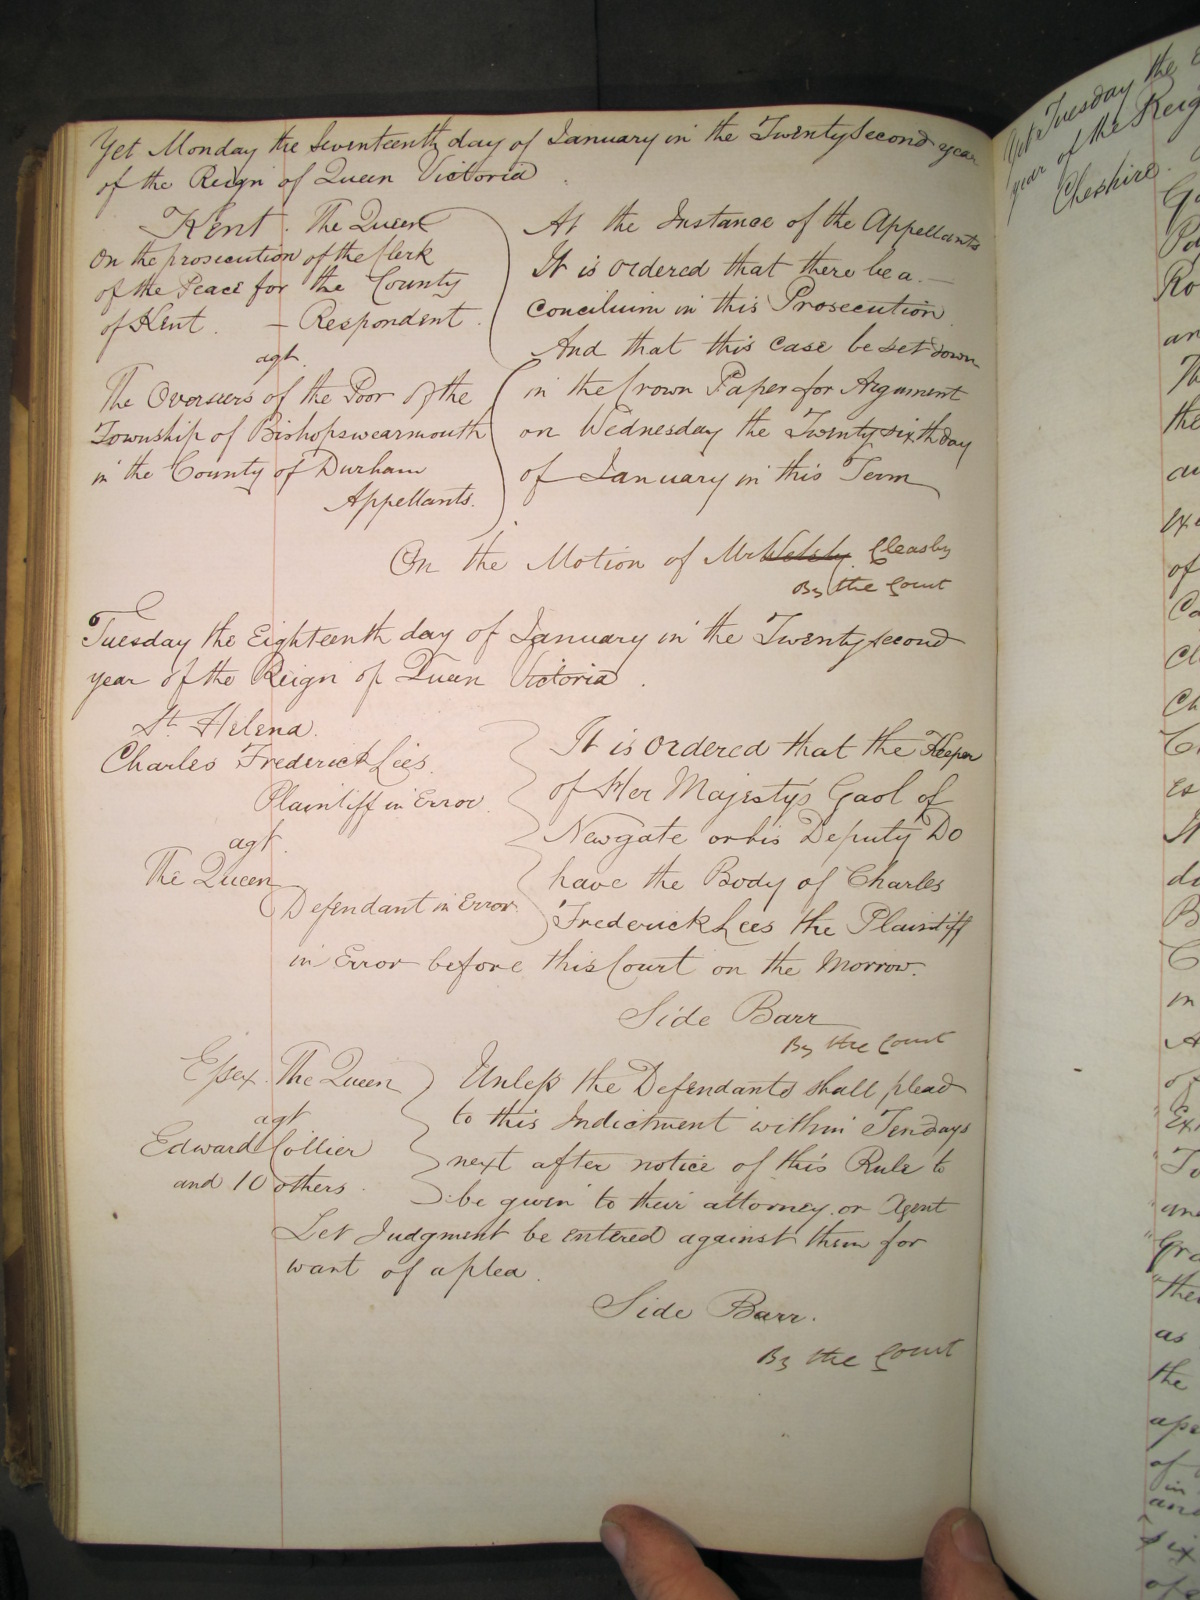 Yet Monday the Seventeenth day of January in the Twenty Second year
of the Reign of Queen Victoria
Kent. The Queen
On the prosecution of the Clerk
of the Peace for the County
of Kent. — Respondent.
agt.
The Overseers of the Poor of the
Township of Bishopswearmouth
in the County of Durham
Appellants.
At the Instance of the Appellants
It is ordered that there be a —
concilium in this Prosecution
And that this case be set down
in the Crown Paper for Argument
on Wednesday the Twenty sixth day
of January in this Term
On the Motion of Mr Welsby Cleasby
By the Court
Tuesday the Eighteenth day of January in the Twenty second
year of the Reign of Queen Victoria.
St. Helena.
Charles Frederick Lees.
Plaintiff in Error.
agt.
The Queen
Defendant in Error.
It is ordered that the Keeper
of Her Majesty's Gaol of
Newgate or his Deputy Do
have the Body of Charles
Frederick Lees the Plaintiff
in Error before this Court on the Morrow.
Side Barr
By the Court
Essex. The Queen
agt
Edward Collier
and 10 others.
Unless the Defendants shall plead
to this Indictment within Ten days
next after notice of this Rule to
be given to their attorney or Agent
Let Judgment be entered against them for
want of a plea.
Side Barr.
By the Court
Yet Tuesday the
year of the Reig
Cheshire.